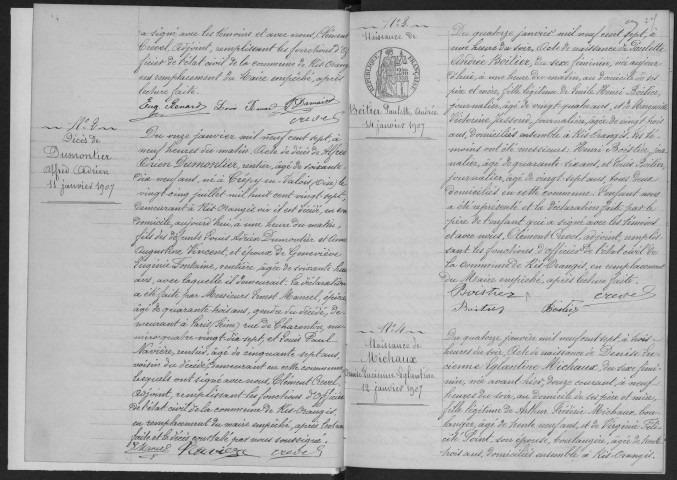 a signé avec les témoins et avec nous, Clément
Crevel, adjoint, remplissant les fonctions d'Of
ficier de l'état civil de la commune de Ris-Orangis
en remplacement du Maire empêché, après
lecture faite.
Eug. Renard
crevel
N° 2
Décès de
Dumontier
Alfred Adrien
11 janvier 1907
Du onze janvier mil neuf cent sept, à
neuf heures du matin. Acte de décès de Alfred
Adrien Dumontier, rentier, âgé de soixante
dix neuf ans, né à Crépy-en-Valois, (Oise) le
vingt cinq juillet mil huit cent vingt sept,
demeurant à Ris-Orangis où il est décédé, en son
domicile, aujourd'hui, à une heure du matin,
fils des défunts Louis Adrien Dumontier et
Augustine Vincent, et époux de Geneviève
Eugénie Fontaine, rentière, âgée de soixante
ans, avec laquelle il demeurait. La déclaration
a été faite par Messieurs Ernest Marcel,
âgé de quarante trois ans, gendre du décédé, de
meurant à Paris (Seine) rue de Charenton, nu
méro quatre vingt dix sept, et Louis Paul
rentier, âgé de cinquante sept ans,
voisin du décédé, demeurant en cette commune
lesquels ont signé avec nous, Clément Crevel,
adjoint, remplissant les fonctions d'officier
de l'état civil de la commune de Ris-Orangis,
en remplacement du maire empêché, après lecture
faite et le décès constaté par nous soussigné.
crevel
N° 3
Naissance de
RÉPUBLIQUE FRANÇAISE
Boitier Paulette Andrée
14 janvier 1907
Du quatorze janvier mil neuf cent sept, à
une heure du soir. Acte de naissance de Paulette
Andrée Boitier, du sexe féminin, née aujour
d'hui, à une heure du matin, au domicile de ses
père et mère, fille légitime de Emile Henri Boitier,
journalier, âgé de vingt quatre ans, et de Marguerite
Victorine journalière, âgée de vingt trois
ans, domiciliés ensemble à Ris-Orangis. Les té
moins ont été messieurs: Henri Boistier, jour
nalier, âgé de quarante six ans, et Louis Boitier,
journalier, âgé de vingt sept ans, tous deux
domiciliés en cette commune. L'enfant nous
a été représenté et la déclaration faite par le
père de l'enfant qui a signé avec les témoins
et avec nous, Clément Crevel, adjoint, remplis
sant les fonctions d'officier de l'état civil de
la commune de Ris-Orangis, en remplacement
du Maire empêché, après lecture faite.
Boistier crevel
Boitier Boitier
N° 4
Naissance de
Michaux
Denise Lucienne Eglantine
12 janvier 1907
Du quatorze janvier mil neuf cent sept, à trois
heures du soir. Acte de naissance de Denise Lu
cienne Eglantine Michaux, du sexe fémi
nin, née avant hier, douze courant, à neuf
heures du soir, au domicile de ses père et mère,
fille légitime de Arthur Michaux, bou
langer, âgé de trente neuf ans, et de Virginie Féli
cité son épouse, boulangère, âgée de trente
trois ans, domiciliés ensemble à Ris-Orangis.